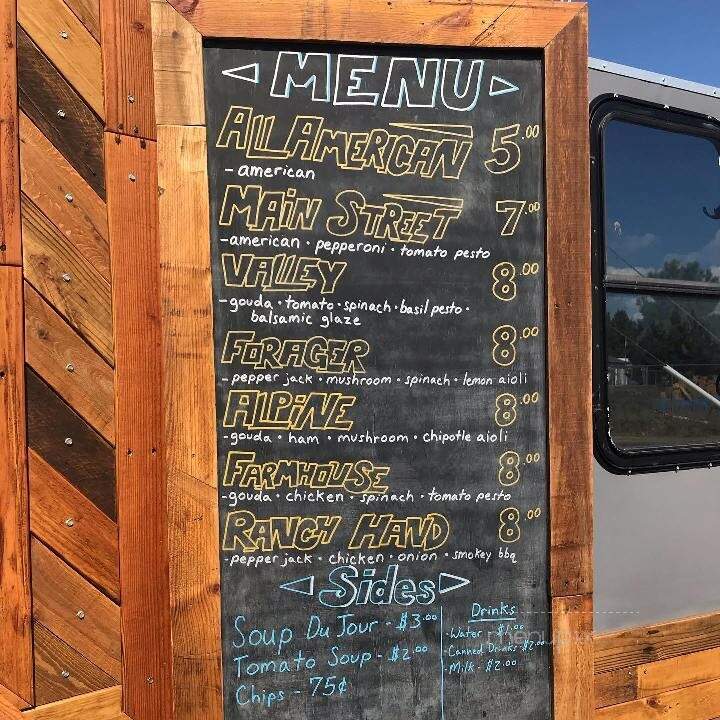 MENU
ALL AMERICAN 5.00
- american
MAIN STREET 7.00
- american · pepperoni · tomato pesto
VALLEY 8.00
- gouda · tomato · spinach · basil pesto ·
balsamic glaze
FORAGER 8.00
- pepper jack · mushroom · spinach · lemon aioli
ALPINE 8.00
- gouda · ham · mushroom · chipotle aioli
FARMHOUSE 8.00
- gouda · chicken · spinach · tomato pesto
RANCH HAND 8.00
- pepper jack · chicken · onion · smokey bbq
Sides
Soup Du Jour - $3.00
Tomato Soup - $2.00
Chips - 75¢
Drinks
- Water - $1.00
- Canned Drinks - $2.00
- Milk - $2.00